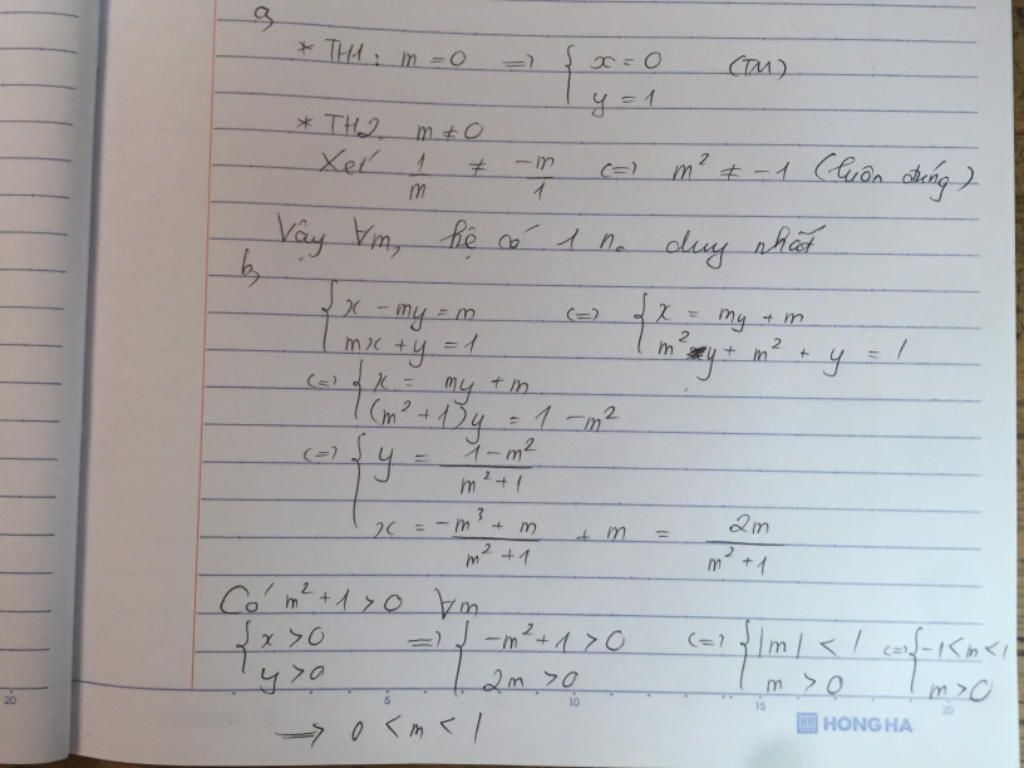 a,
* TH1: m = 0 => { x = 0 (TM)
y = 1
* TH2. m ≠ 0
Xét 1/m ≠ -m/1 <=> m² ≠ -1 (luôn đúng)
Vậy ∀m, hệ có 1 n. duy nhất
b,
{ x - my = m <=> { x = my + m
mx + y = 1 m²y + m² + y = 1
<=> { x = my + m
(m² + 1)y = 1 - m²
<=> { y = (1 - m²)/(m² + 1)
x = (-m³ + m)/(m² + 1) + m = 2m/(m² + 1)
Có m² + 1 > 0 ∀m
{ x > 0 => { -m² + 1 > 0 <=> { |m| < 1 <=> { -1 < m < 1
y > 0 2m > 0 m > 0 m > 0
→ 0 < m < 1
20 5 10 15 20
HH HONG HA